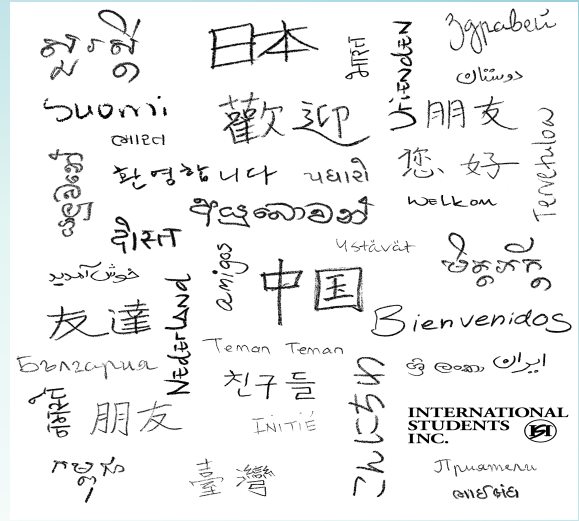 សួរស្តី
日本
भारत
vrienden
Здравей
دوستان
Suomi
歡迎
朋友
ભારત
您好
Tervetuloa
환영합니다
પધારો
Welkom
අයුබෝවන්
दोस्त
amigos
Ystävät
មិត្តភក្តិ
خوش آمدید
Nederland
中国
友達
Bienvenidos
България
Teman Teman
친구들
こんにちわ
ශ්‍රී ලංකා
ایران
नमस्ते
朋友
INITIÉ
INTERNATIONAL
STUDENTS
INC.
កម្ពុជា
臺灣
Приятели